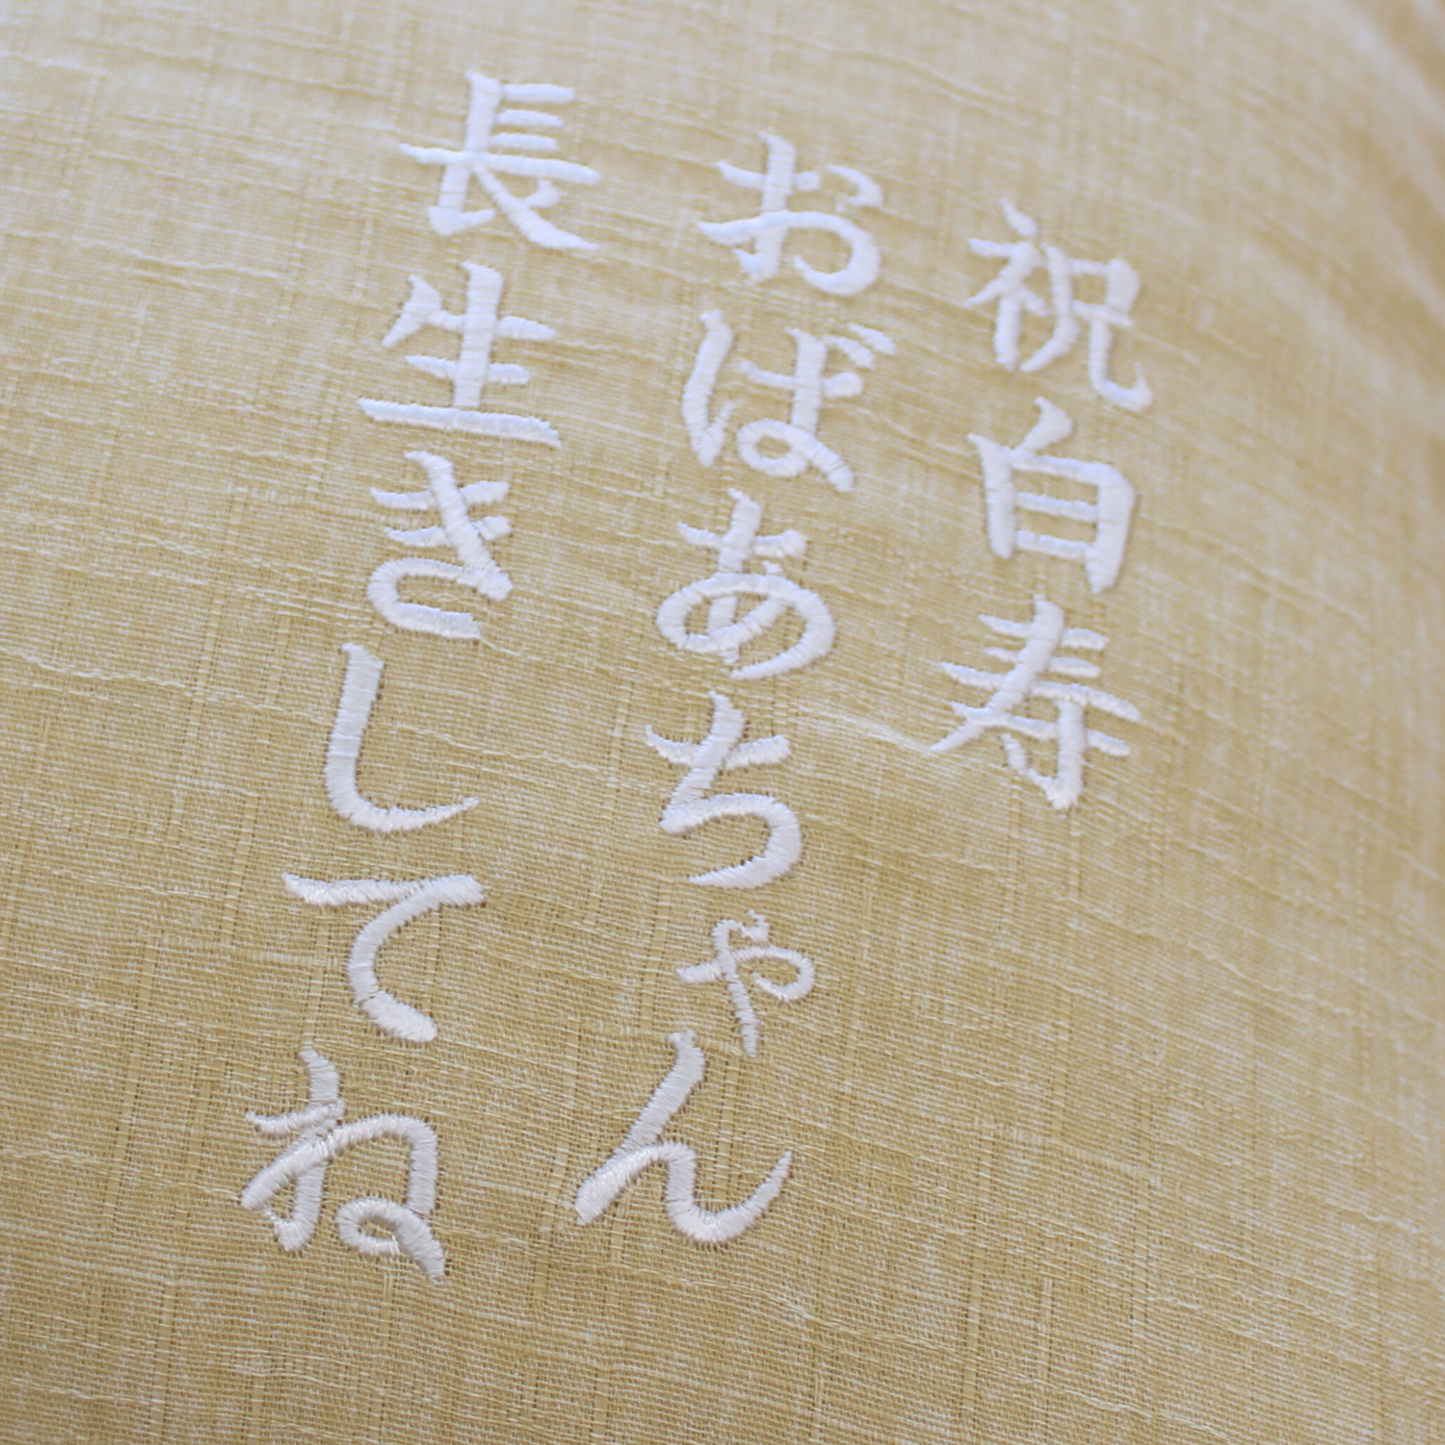 祝白寿
おばあちゃん
長生きしてね